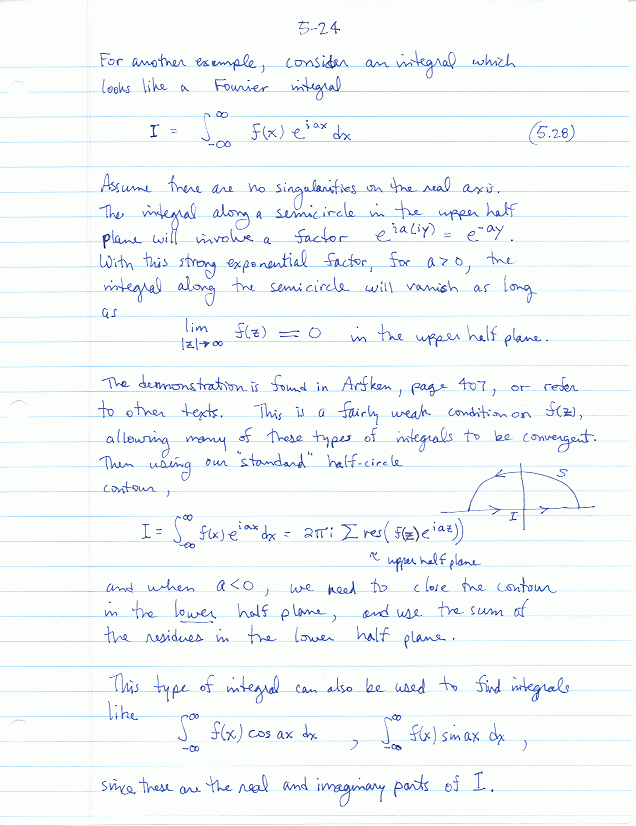 5-24
For another example, consider an integral which
looks like a Fourier integral
I = ∫_{-∞}^{∞} f(x) e^{iax} dx (5.28)
Assume there are no singularities on the real axis.
The integral along a semicircle in the upper half
plane will involve a factor e^{ia(iy)} = e^{-ay}.
With this strong exponential factor, for a>0, the
integral along the semicircle will vanish as long
as
lim_{|z|→∞} f(z) = 0 in the upper half plane.
The demonstration is found in Arfken, page 407, or refer
to other texts. This is a fairly weak condition on f(z),
allowing many of these types of integrals to be convergent.
Then using our "standard" half-circle
contour,
S
I
I = ∫_{-∞}^{∞} f(x) e^{iax} dx = 2πi Σ res(f(z)e^{iaz})
upper half plane
and when a<0, we need to close the contour
in the lower half plane, and use the sum of
the residues in the lower half plane.
This type of integral can also be used to find integrals
like
∫_{-∞}^{∞} f(x) cos ax dx , ∫_{-∞}^{∞} f(x) sin ax dx ,
since these are the real and imaginary parts of I.